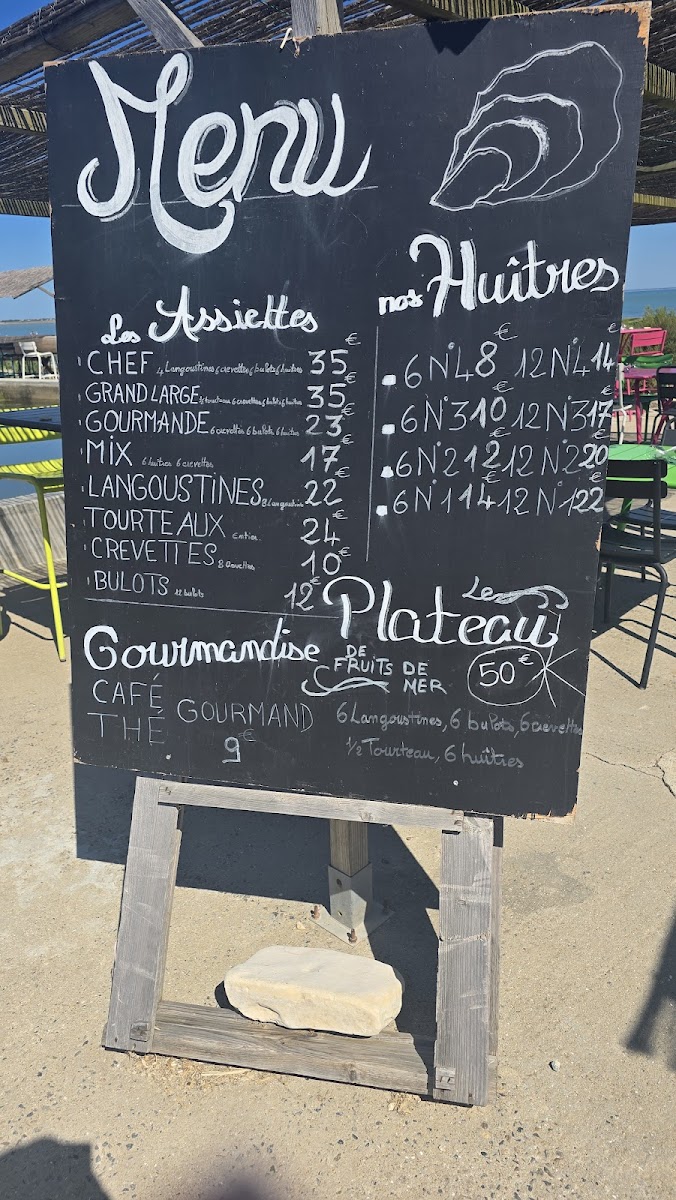 Menu
Les Assiettes
CHEF 4 Langoustines 6 crevettes 6 bulots 6 huîtres 35€
GRAND LARGE ½ tourteau 6 crevettes 6 bulots 6 huîtres 35€
GOURMANDE 6 crevettes 6 bulots 6 huîtres 23€
MIX 6 huîtres 6 crevettes 17€
LANGOUSTINES 8 Langoustines 22€
TOURTEAUX entier 24€
CREVETTES 8 Crevettes 10€
BULOTS 12 bulots 12€
nos Huîtres
6 N°4 8€ 12 N°4 14€
6 N°3 10€ 12 N°3 17€
6 N°2 12€ 12 N°2 20€
6 N°1 14€ 12 N°1 22€
Gourmandise
CAFÉ
THÉ GOURMAND
9€
Le Plateau
DE FRUITS DE MER
50€
6 Langoustines, 6 bulots, 6 crevettes
½ Tourteau, 6 huîtres